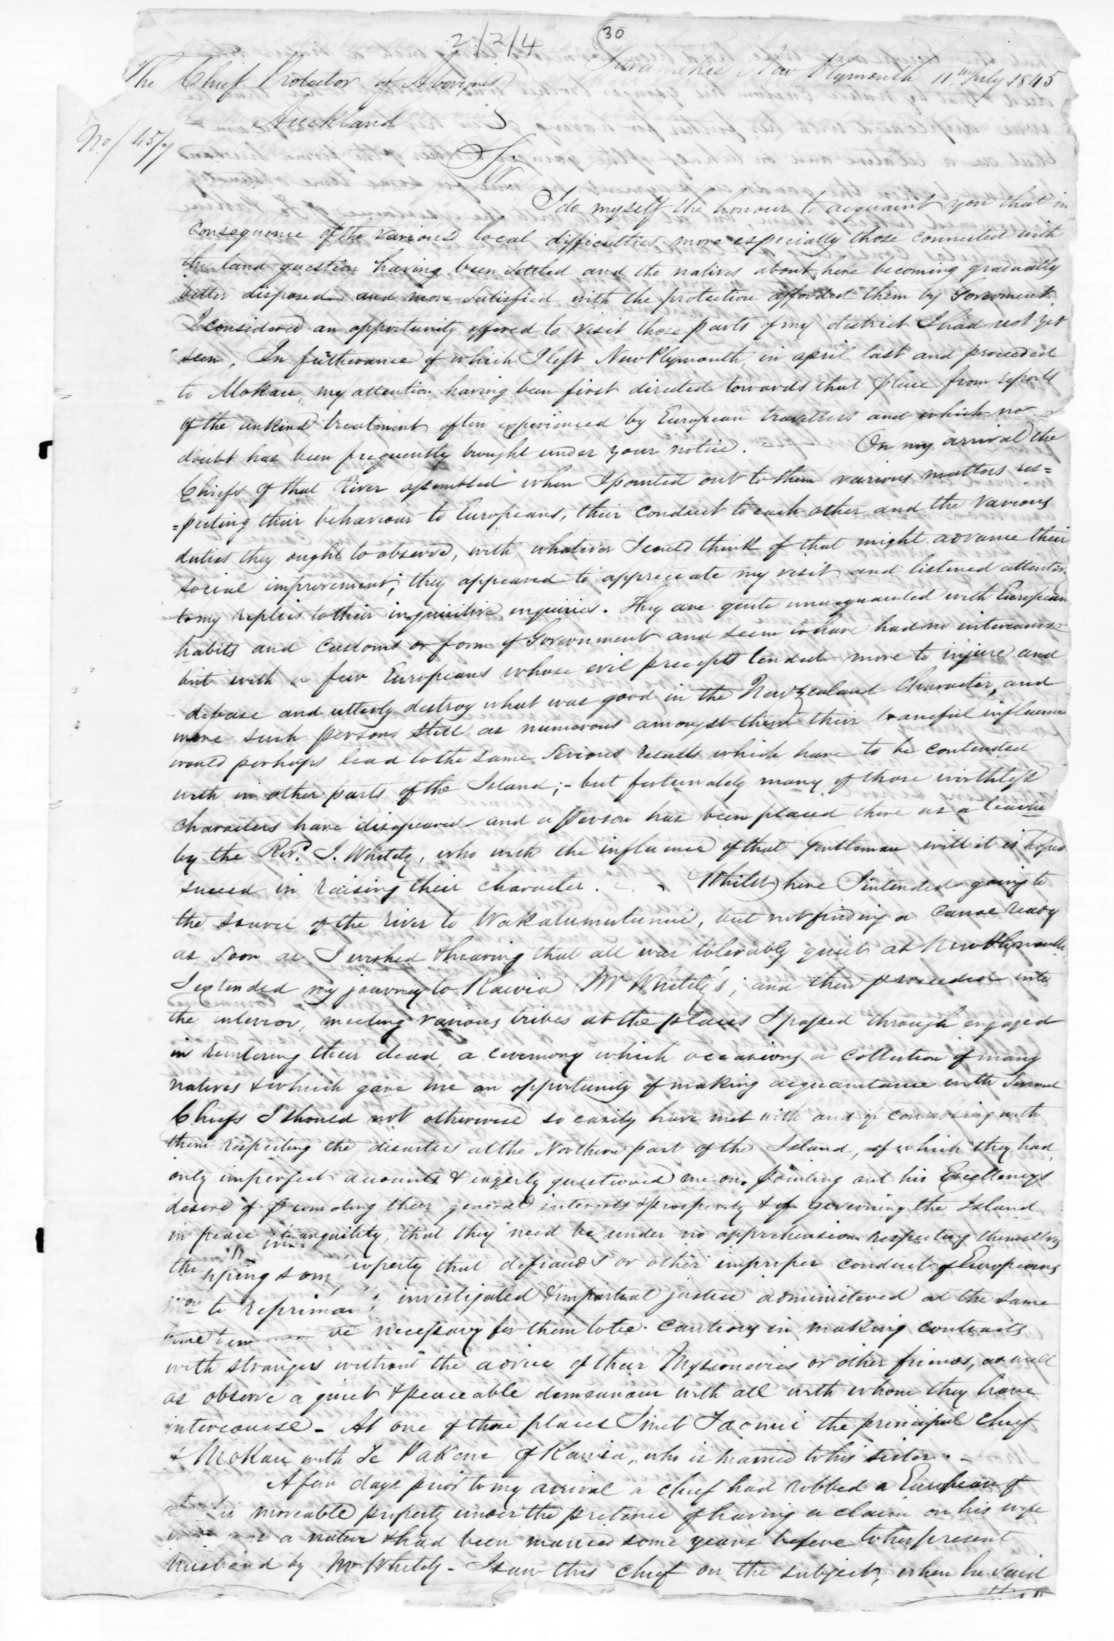 2/3/4 (30)
The Chief Protector of Aborigines Taranaki New Plymouth 11th July 1845
Auckland
No/ 45/7
Sir
I do myself the honour to acquaint you that in
consequence of the various local difficulties, more especially those connected with
the land question having been settled and the natives about here becoming gradually
better disposed and more satisfied with the protection afforded them by Goverment.
I considered an opportunity offered to visit those parts of my district I had not yet
seen. In furtherance of which I left New Plymouth in april last and proceeded
to Mokau, my attention having been first directed towards that place from reports
of the unkind treatment often experienced by European travellers and which no
doubt has been frequently brought under your notice. On my arrival the
Chiefs of that River assembled when I pointed out to them various matters res=
=pecting their behaviour to Europeans, their conduct to each other and the various
duties they ought to observe, with whatever I could think of that might advance their
social improvement; they appeared to appreciate my visit and listened attentive
to my replies to their inquisitive enquiries. They are quite unacquainted with European
habits and customs or form of Government and seem to have had no intercourse
but with a few Europeans whose evil precepts tended more to injure and
debase and utterly destroy what was good in the New Zealand Character, and
were such persons still as numerous amongst them their baneful influence
would perhaps lead to the same serious results which have to be contended
with in other parts of the Island;- but fortunately many of those worthless
characters have disapeared and a person has been placed there as a teacher
by the Revd. J. Whitely, who with the influence of that Gentleman will it is hoped
succeed in raising their character. Whilst here I intended going to
the source of the river to Wakatumutumu, but not finding a canoe ready
as soon as I wished & hearing that all was tolerably quiet at New Plymouth
I extended my journey to Kawia Mr Whitely's; and then proceeded into
the interior, meeting various tribes at the places I passed through engaged
in reintering their dead a ceremony which occasions a collection of many
natives & which gave me an opportunity of making acquaintance with several
Chiefs I should not otherwise so easily have met with and of conversing with
them respecting the disasters at the Northern part of the Island, of which they had
only imperfect accounts & eagerly questioned me on, pointing out his Excellencys
desire of promoting their general interests & prosperity & of governing the Island
in peace & tranquility, that they need be under no apprehension respecting themselves
the property that defrauds or other improper conduct of Europeans
investigated & impartial justice administered at the same
time be necessary for them to be cautious in making contracts
with strangers without the advice of their Myssioneries or other friends, as well
as observe a quiet & peaceable demeanour with all with whom they have
intercourse - At one of those places I met Taonui the principal Chief
of Mokau with Te Pakaru of Kawia, who is married to his sister. -
A few days prior to my arrival a chief had robbed a European of
moveable property under the pretence of having a claim on his wife
a native & had been married some years before to her present
husband by Mr Whitely - I saw this chief on the subject, when he said